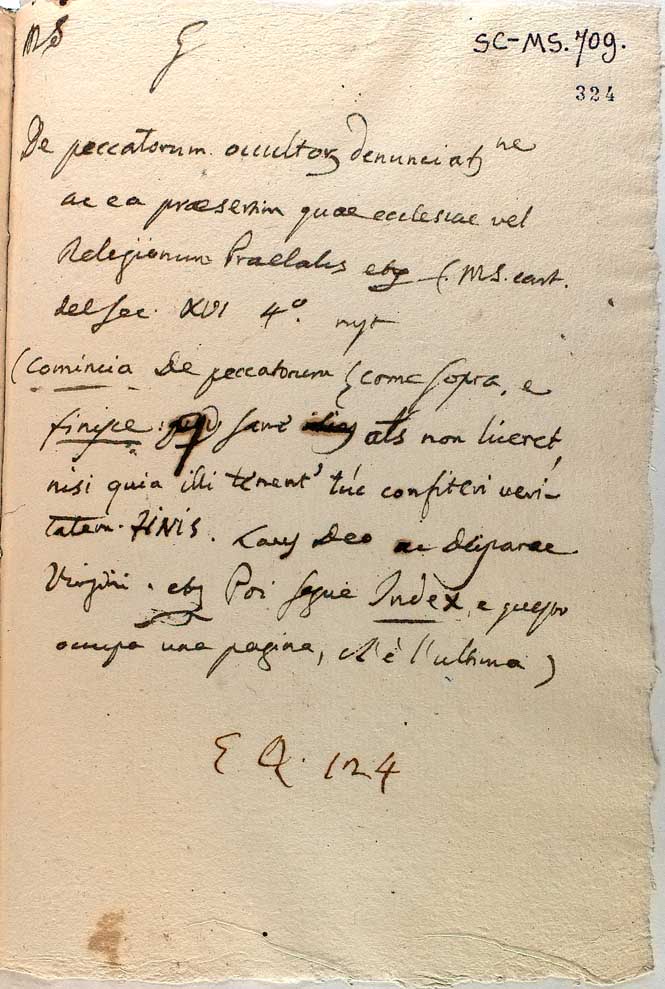 MS
SC-MS. 709.
324
De peccatorum occultoꝝ denunciatne
ac ea præsertim quae ecclesiae vel
Religionum Praelatis etc (MS. cart.
del sec. XVI 4º.
(comincia De peccatorum come sopra, e
finisce: sane als non liceret,
nisi quia illi tenent' túc confiteri veri-
tatem. FINIS. Laus Deo ac Deiparae
Virgini. etc Poi segue Index, e questo
occupa una pagina, ch'è l'ultima)
E Q. 124